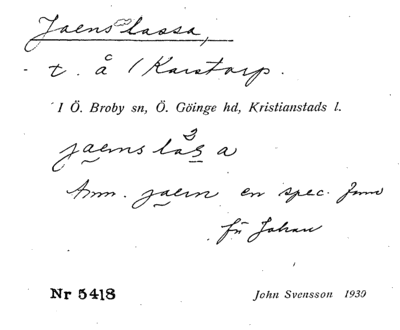 Jaens lassa,
t. å 1 Karstorp.
I Ö. Broby sn, Ö. Göinge hd, Kristianstads l.
jaens las a
Anm. jaen en spec. form
för Johan
Nr 5418
John Svensson 1930